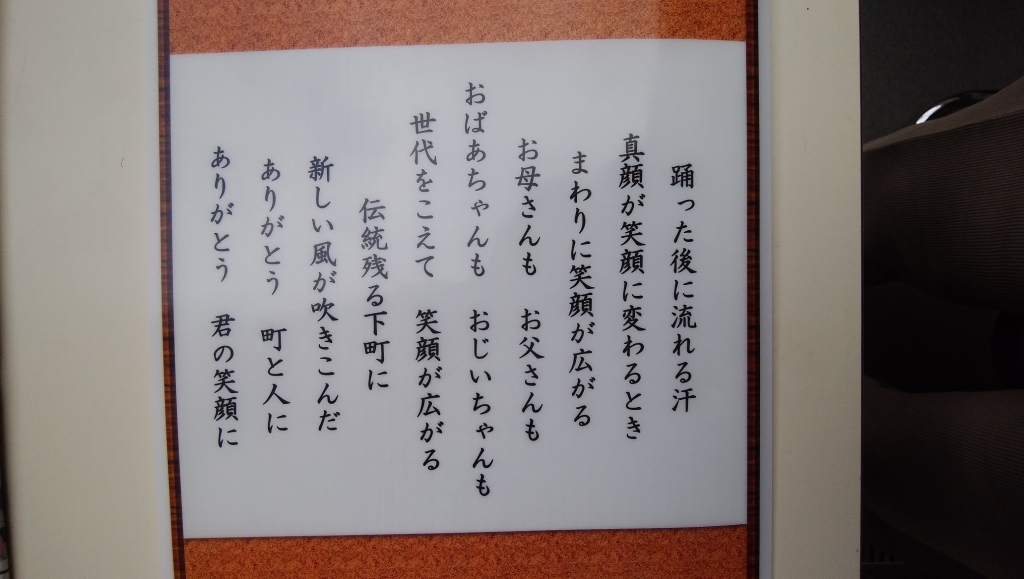 踊った後に流れる汗
真顔が笑顔に変わるとき
まわりに笑顔が広がる
お母さんも　お父さんも
おばあちゃんも　おじいちゃんも
世代をこえて　笑顔が広がる
伝統残る下町に
新しい風が吹きこんだ
ありがとう　町と人に
ありがとう　君の笑顔に